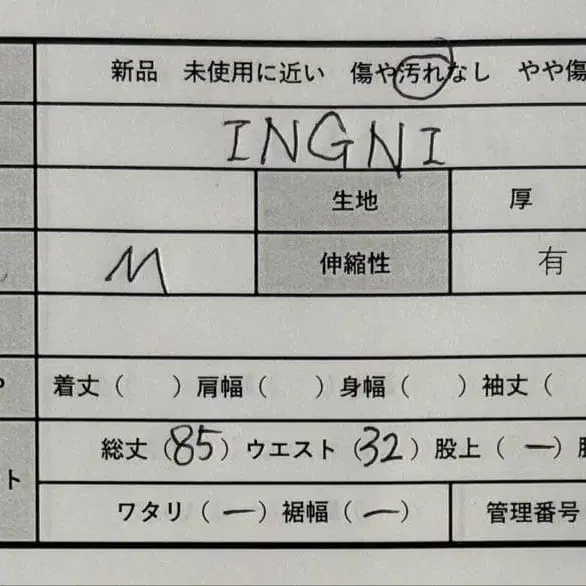 新品 未使用に近い 傷や汚れなし やや傷
INGNI
生地 厚
M 伸縮性 有
着丈（ ）肩幅（ ）身幅（ ）袖丈（
総丈（85）ウエスト（32）股上（ー）股
ト
ワタリ（ー）裾幅（ー） 管理番号